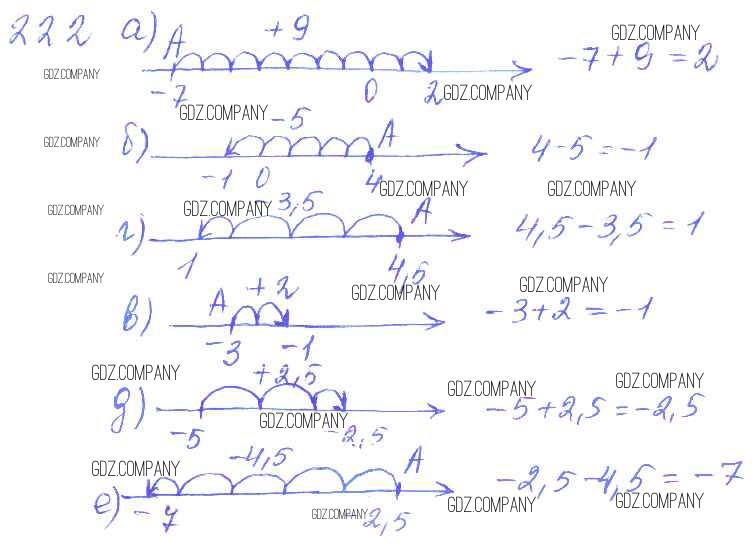 222 а) A +9 GDZ.COMPANY
GDZ.COMPANY -7 0 2 GDZ.COMPANY -7+9=2
GDZ.COMPANY -5
GDZ.COMPANY б) A 4-5=-1
-1 0 4 GDZ.COMPANY GDZ.COMPANY
GDZ.COMPANY GDZ.COMPANY 3,5 A
г) 4,5-3,5=1
1 4,5
GDZ.COMPANY GDZ.COMPANY GDZ.COMPANY
в) A +2 -3+2=-1
-3 -1
GDZ.COMPANY +2,5 GDZ.COMPANY GDZ.COMPANY
д) -5+2,5=-2,5
-5 GDZ.COMPANY -2,5
GDZ.COMPANY -4,5 A
е) -2,5-4,5=-7
-7 GDZ.COMPANY -2,5 GDZ.COMPANY GDZ.COMPANY